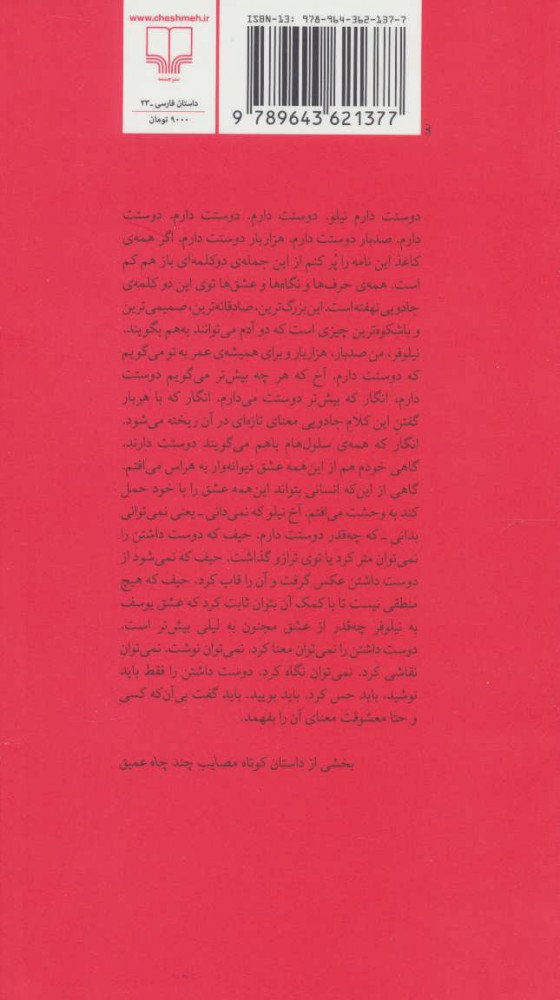 www.cheshmeh.ir
نشرچشمه
داستان فارسی ـ ۲۳
۹۰۰۰ تومان
ISBN-13: 978-964-362-137-7
9 789643 621377
دوستت دارم نیلو. دوستت دارم. دوستت دارم. دوستت
دارم. صدبار دوستت دارم. هزاربار دوستت دارم. اگر همه‌ی
کاغذ این نامه را پُر کنم از این جمله‌ی دوکلمه‌ای باز هم کم
است. همه‌ی حرف‌ها و نگاه‌ها و عشق‌ها توی این دو کلمه‌ی
جادویی نهفته است. این بزرگ‌ترین، صادقانه‌ترین، صمیمی‌ترین
و باشکوه‌ترین چیزی است که دو آدم می‌توانند به‌هم بگویند.
نیلوفر، من صدبار، هزاربار و برای همیشه‌ی عمر به تو می‌گویم
که دوستت دارم. آخ که هر چه بیش‌تر می‌گویم دوستت
دارم، انگار که بیش‌تر دوستت می‌دارم. انگار که با هربار
گفتن این کلام جادویی معنای تازه‌ای در آن ریخته می‌شود.
انگار که همه‌ی سلول‌هام باهم می‌گویند دوستت دارند.
گاهی خودم هم از این‌همه عشق دیوانه‌وار به هراس می‌افتم.
گاهی از این‌که انسانی بتواند این‌همه عشق را با خود حمل
کند به وحشت می‌افتم. آخ نیلو که نمی‌دانی ـ یعنی نمی‌توانی
بدانی ـ که چه‌قدر دوستت دارم. حیف که دوست داشتن را
نمی‌توان متر کرد یا توی ترازو گذاشت. حیف که نمی‌شود از
دوست داشتن عکس گرفت و آن را قاب کرد. حیف که هیچ
منطقی نیست تا با کمک آن بتوان ثابت کرد که عشق یوسف
به نیلوفر چه‌قدر از عشق مجنون به لیلی بیش‌تر است.
دوست داشتن را نمی‌توان معنا کرد. نمی‌توان نوشت. نمی‌توان
نقاشی کرد. نمی‌توان نگاه کرد. دوست داشتن را فقط باید
نوشید. باید حس کرد. باید بویید. باید گفت بی‌آن‌که کسی
و حتا معشوقت معنای آن را بفهمد.
بخشی از داستان کوتاه مصایب چند چاه عمیق